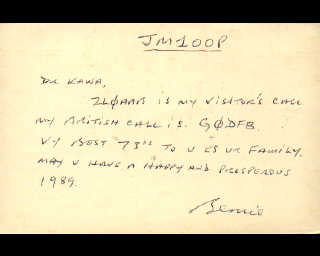 JM1OOP
DR KAWA,
ZL0AAR IS MY VISITOR'S CALL
MY BRITISH CALL IS. G0DFB.
VY BEST 73'S TO U ES UR FAMILY.
MAY U HAVE A HAPPY AND PROSPEROUS
1989.
Bernie